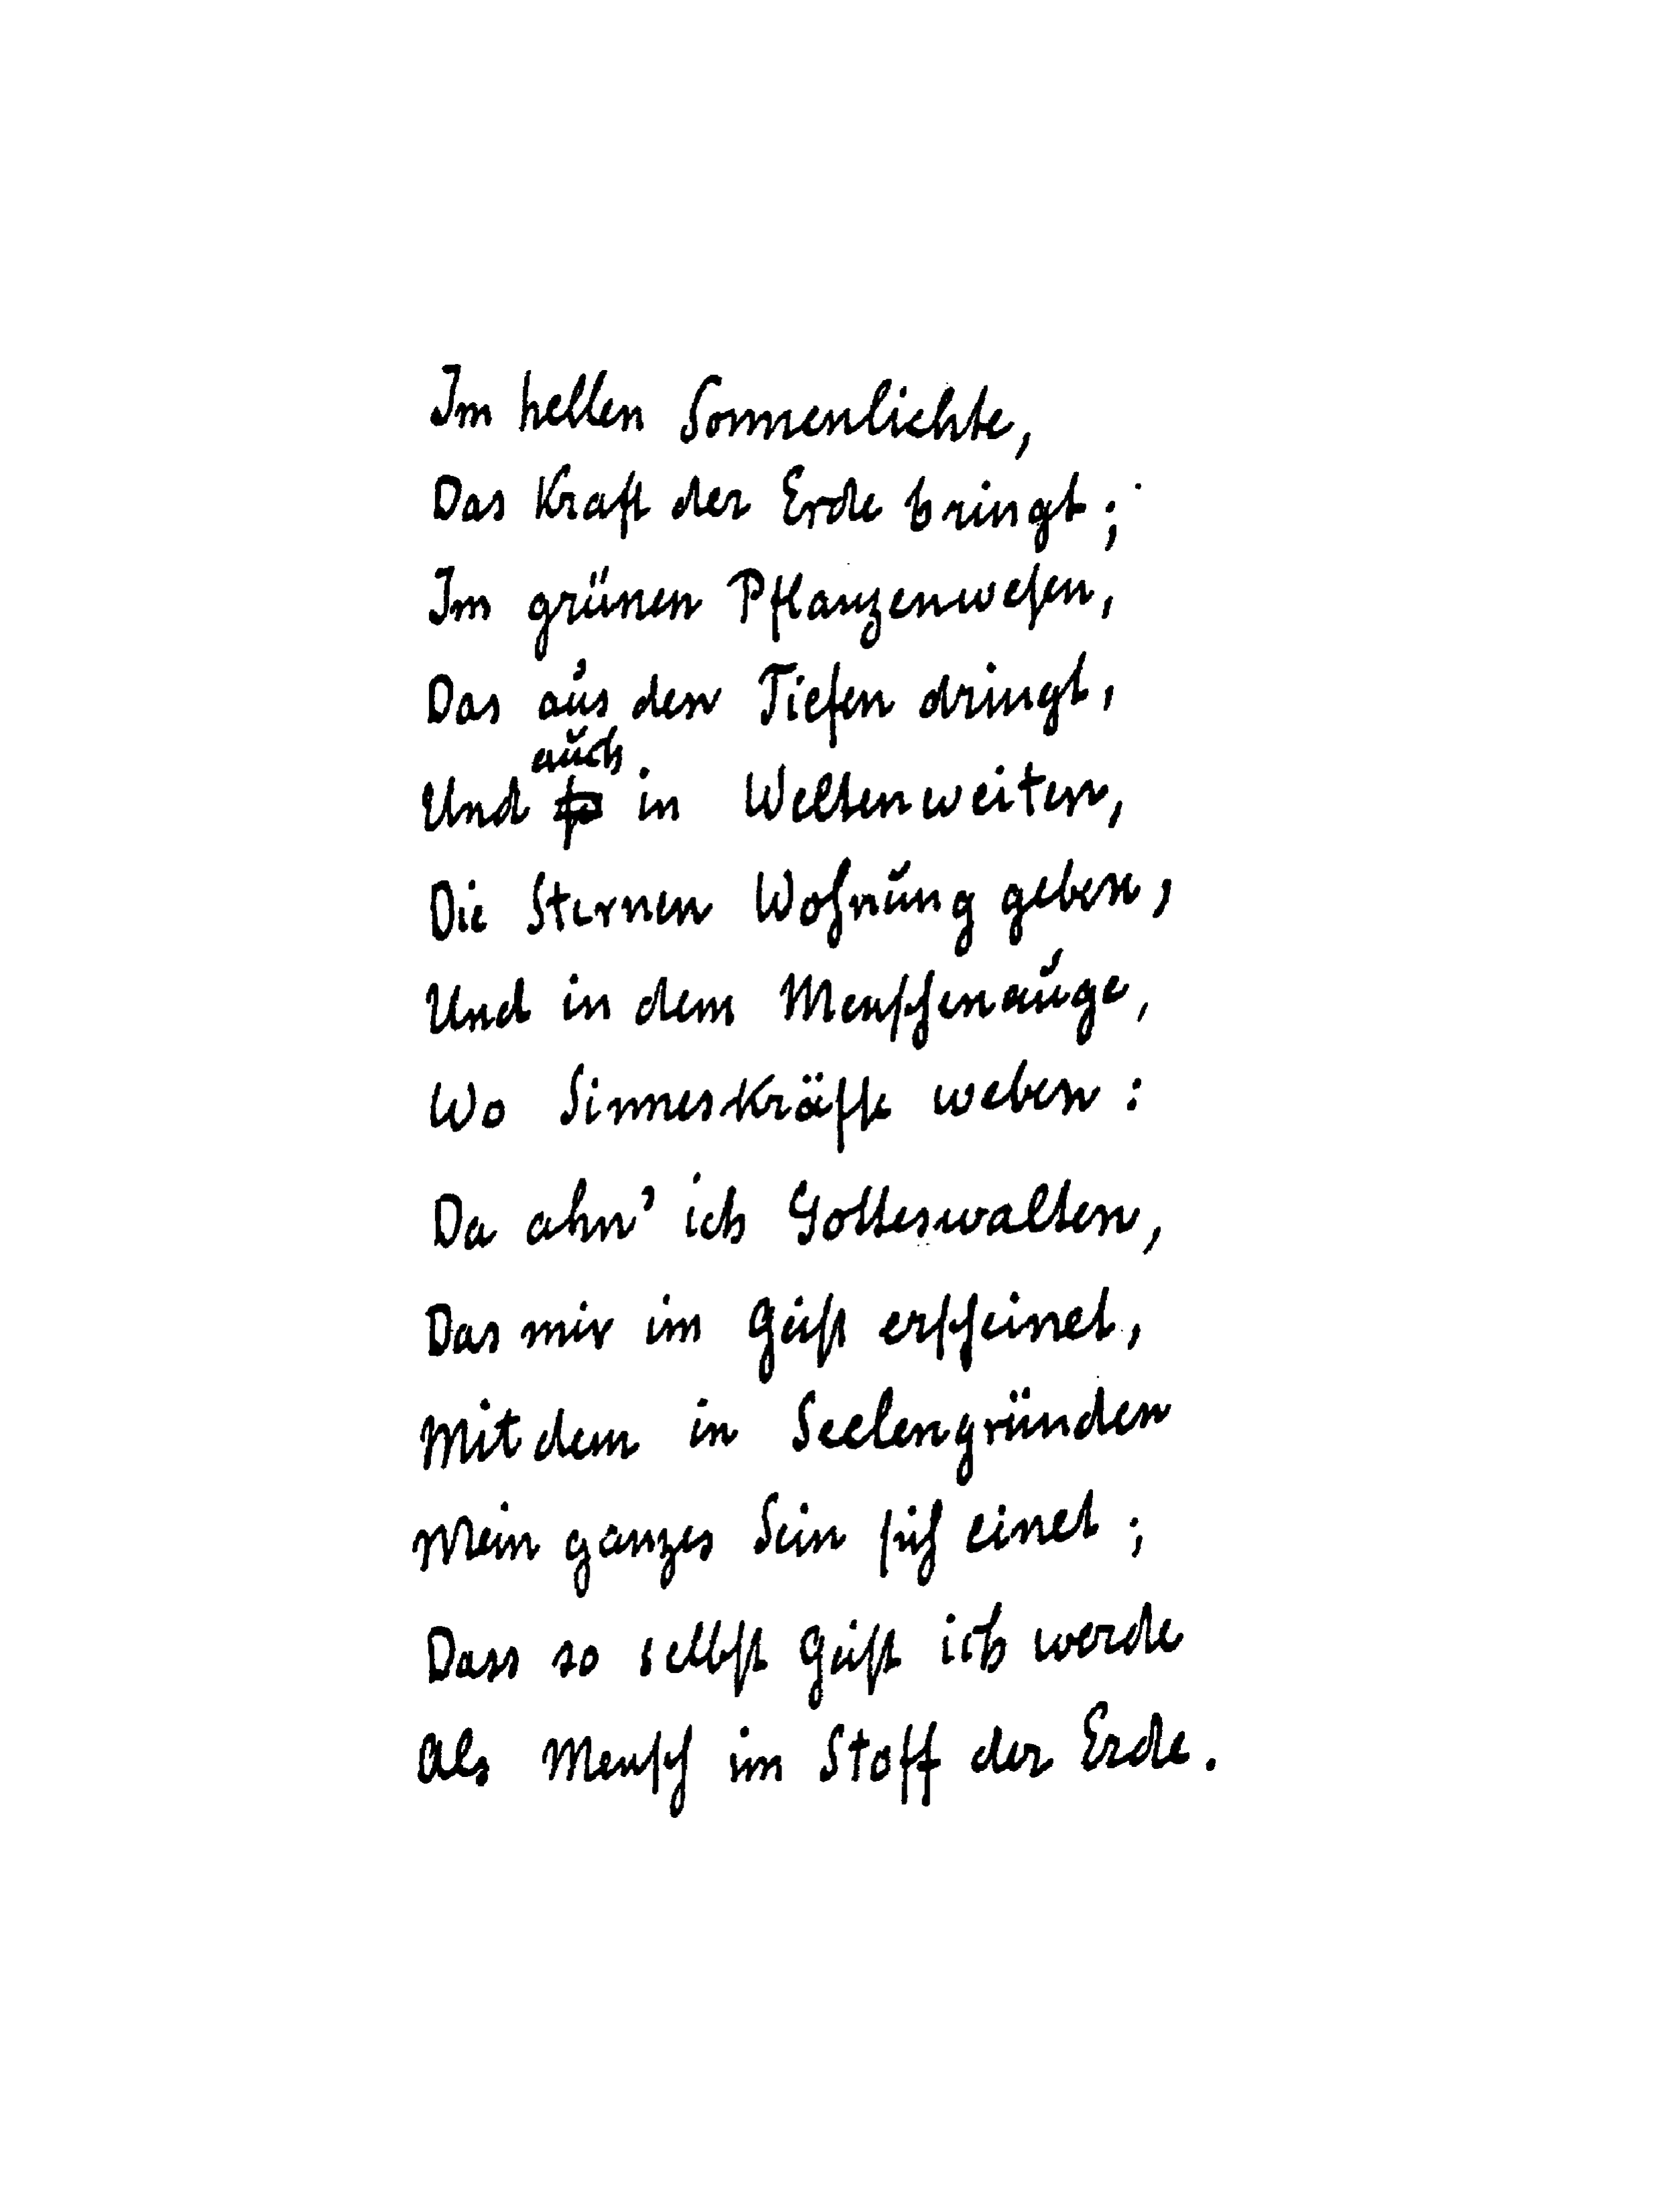 Im hellen Sonnenlichte,
Das Kraft der Erde bringt;
Im grünen Pflanzenwesen,
Das aus den Tiefen dringt,
auch
Und in Weltenweiten,
Die Sternen Wohnung geben,
Und in dem Menschenauge,
Wo Sinneskräfte weben:
Da ahn' ich Gotteswalten,
Das mir im Geist erscheinet,
Mit dem in Seelengründen
Mein ganzes Sein sich einet;
Dass so selbst Geist ich werde
Als Mensch im Stoff der Erde.